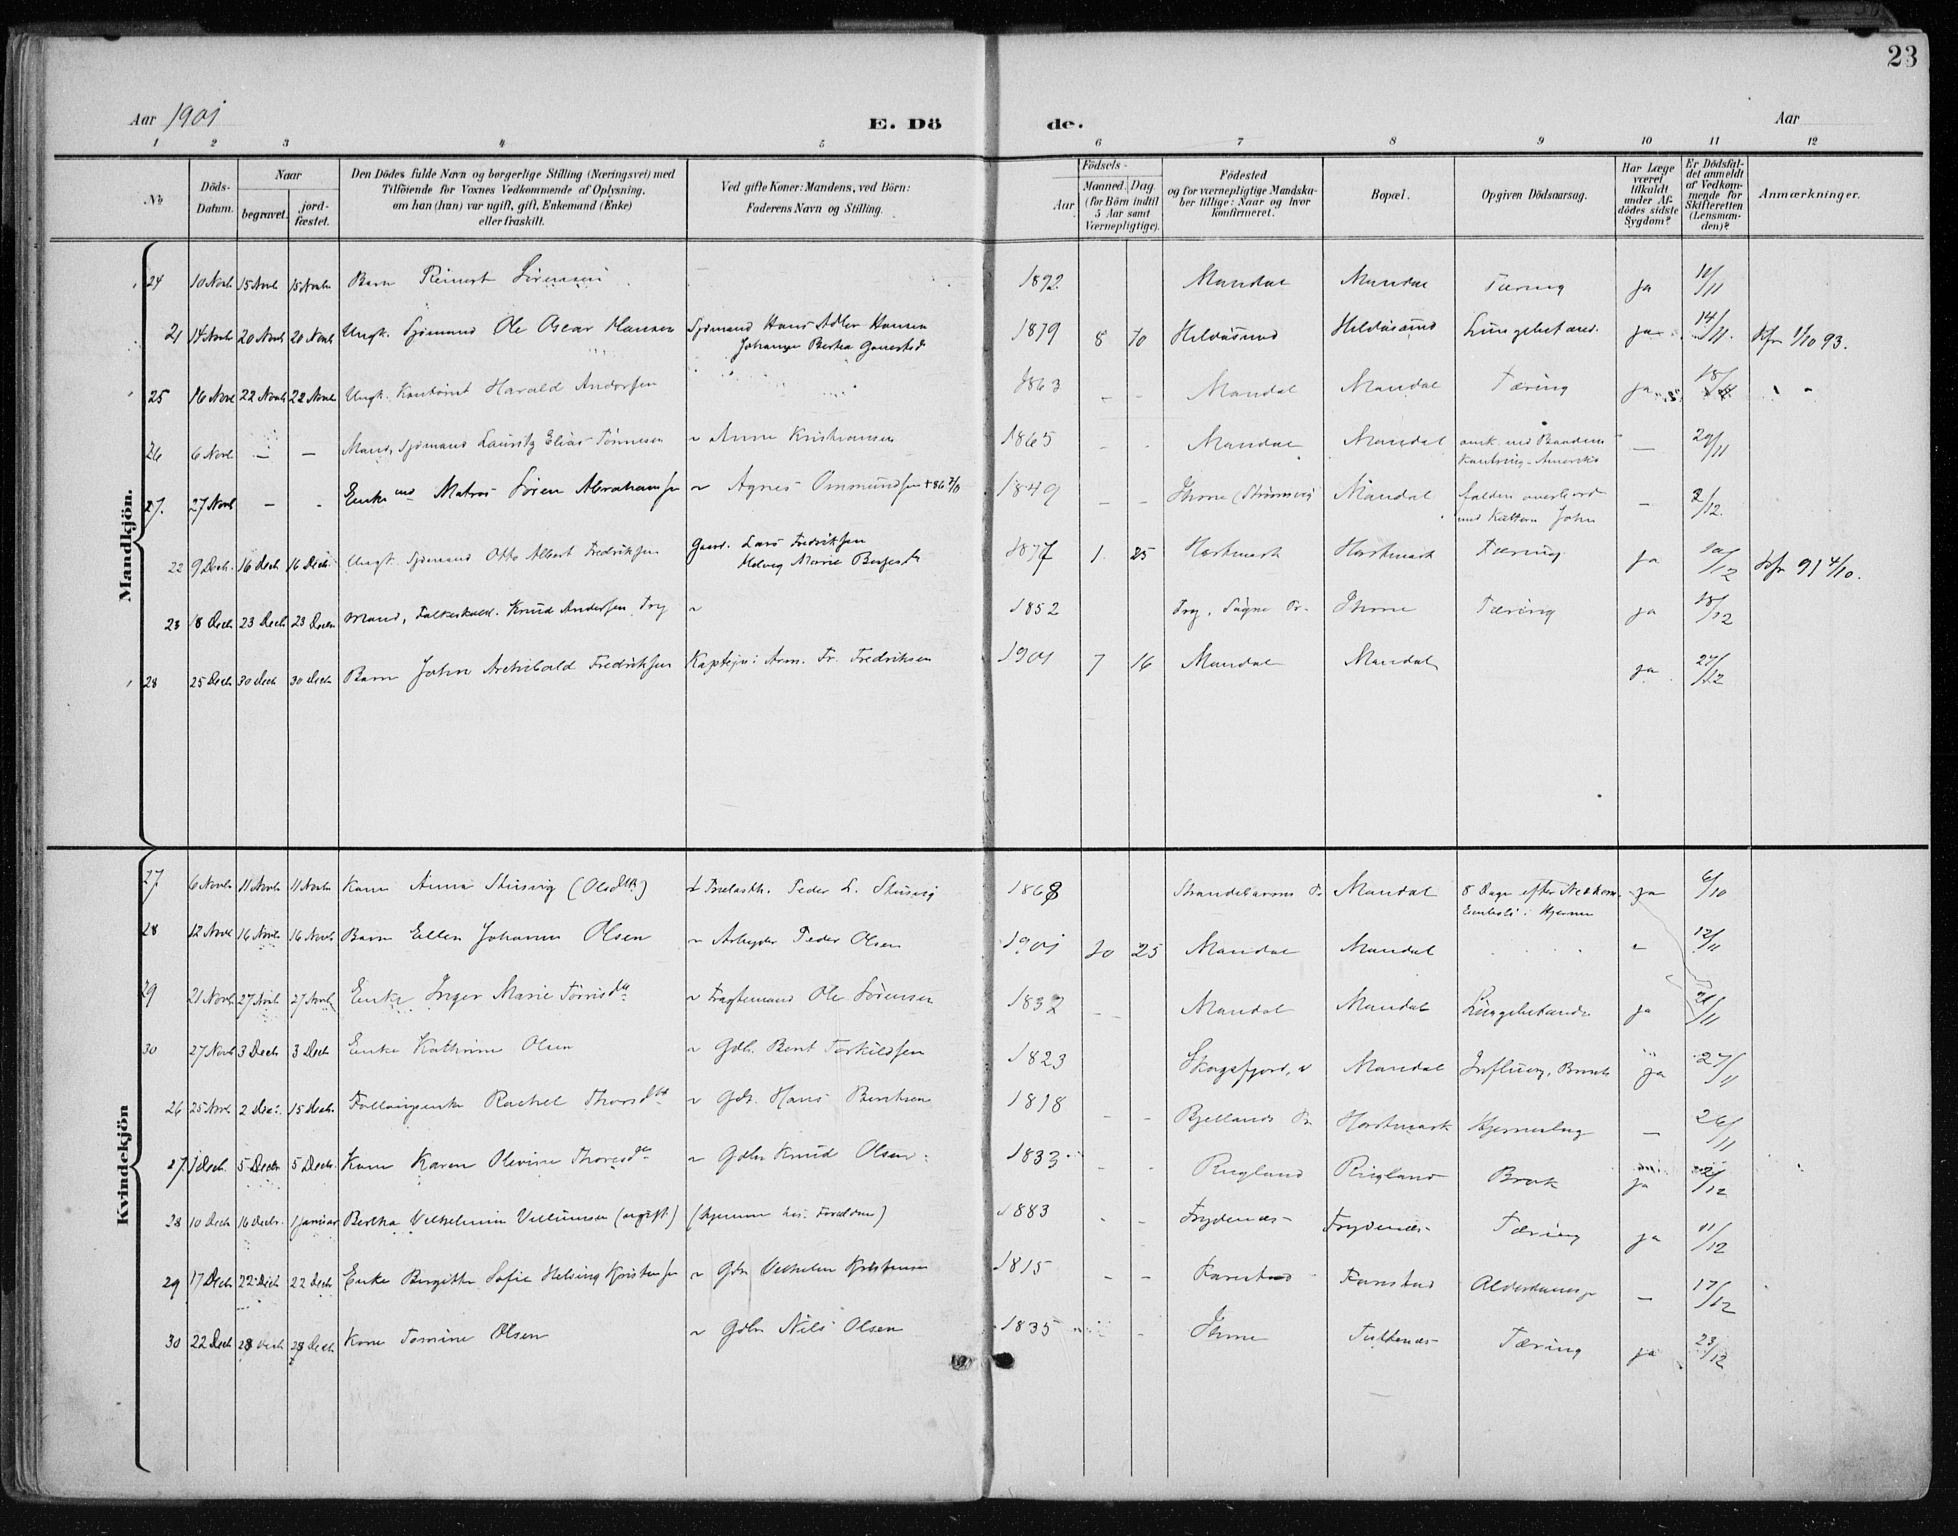 23
Aar 1901
E. Dö de.
Aar
1 2 3 4 5 6 7 8 9 10 11 12
No
Döds-Datum.
Naar
begravet.
jord-fæstet.
Den Dödes fulde Navn og borgerlige Stilling (Næringsvei) med
Tilföiende för Voxnes Vedkommende af Oplysning,
om han (hun) var ugift, gift, Enkemand (Enke)
eller fraskilt.
Ved gifte Koner: Mandens, ved Börn:
Faderens Navn og Stilling.
Födsels-
Aar
Maaned. Dag
(for Börn indtil
5 Aar samt
Værnepligtige).
Födested
og for værnepligtige Mandska-
ber tillige: Naar og hvor
konfirmeret.
Bopæl.
Opgiven Dödsaarsag.
Har Læge
været
tilkaldt
under Af-
dödes sidste
Sygdom?
Er Dödsfal-
det anmeldt
af Vedkom-
mende for
Skifteretten
(Lensman-
den)?
Anmærkninger.
Mandkjön.
24 10 Novb 15 Novb 15 Novb Barn Reinert Sörensen 1892 Mandal Mandal Tæring ja 10/11
21 14 Novb 20 Novb 20 Novb Ungk. Sjömand Ole Oscar Hansen Sjömand Hans Adler Hansen 1879 8 10 Hildøsund Hildøsund ja 14/11 Kfr 1/10 93.
Johanne Bertea
25 16 Novb 22 Novb 22 Novb Ungk. Harald Andersen 1863 - - Mandal Mandal Tæring ja 18/11
26 6 Novb - - Mand, Sjömand Lauritz Elias Tönnesen Anne Kristiansen 1865 - - Mandal Mandal - 29/11
27. 27 Novb - - Enkemd Matros Sören Abrahamsen Agnes Ommundsen 1849 - - Ihme Mandal falden overbord - 3/12
med Kuttern John
22 9 Decb. 16 Decb 16 Decb. Ungk. Sjömand Otto Albert Fredriksen Gaard. Lars Fredriksen 1877 1. 25 Hartmark Hartmark Tæring ja 10/12 Kfr 91 4/10.
Marie
23 18 Decb 23 Decb 23 Decb Mand, Knud Andersen Try 1852 Try, Søgne Pr. Ihme Tæring ja 18/12
28 25 Decb 30 Decb 30 Decb Barn John Archibald Fredriksen Kaptejn i Arm. Fr. Fredriksen 1901 7 16 Mandal Mandal ja 27/12
Kvindekjön
27. 6 Novb 11 Novb 11 Novb Kone Anna Stusvig (Olsdtr) Peder L. Stusvig 1868 Strandebarms Pr Mandal 8 Dage efter Nedkom. ja 6/10
Emboli i Hjernen
28 12 Novb 16 Novb 16 Novb Barn Ellen Johanne Olsen Arbeider Peder Olsen 1901 10 25 Mandal Mandal 12/11
29 21 Novb 27 Novb 27 Novb Enke Inger Marie Tönnisdtr Fragtemand Ole Sörensen 1832 - - Mandal Mandal ja 21/11
30 27 Novb 3 Decb 3 Decb Enke Kathrine Olsen Gdbr. Bent Torkildsen 1823 Skogsfjord, Mandal Influenz, Bronch ja 27/11
26 25 Novb 2 Dec. 15 Decb. Rachel Thorsdtr Gdbr. Hans Bentsen 1818 - - Bjellands Pr Hartmark Hjerneslag - 26/11
27. 1 Decb. 5 Decb 5 Decb. Kone Karen Olevine Thoresdtr Gdbr Knud Olsen 1833 - - Rugland Rugland Brok ja 2/12
28 10 Decb 16 Decb. 1 Januar Bertha Vilhelmine Villumsen (ugift) (hjemme hos Forældrene) 1883 - - Frydenæs Frydenæs Tæring ja 11/12
29 17 Decb 22 Decb 22 Decb Enke Birgitte Sofie Helsing Kristensen Gdbr Vilhelm Kristensen 1815 - - Farestad Farestad Alderdomss. - 17/12
30 22 Decb 28 Decb 28 Decb Kone Tomine Olsen Gdbr Nils Olsen 1835 - Ihme Tuftenæs Tæring ja 23/12